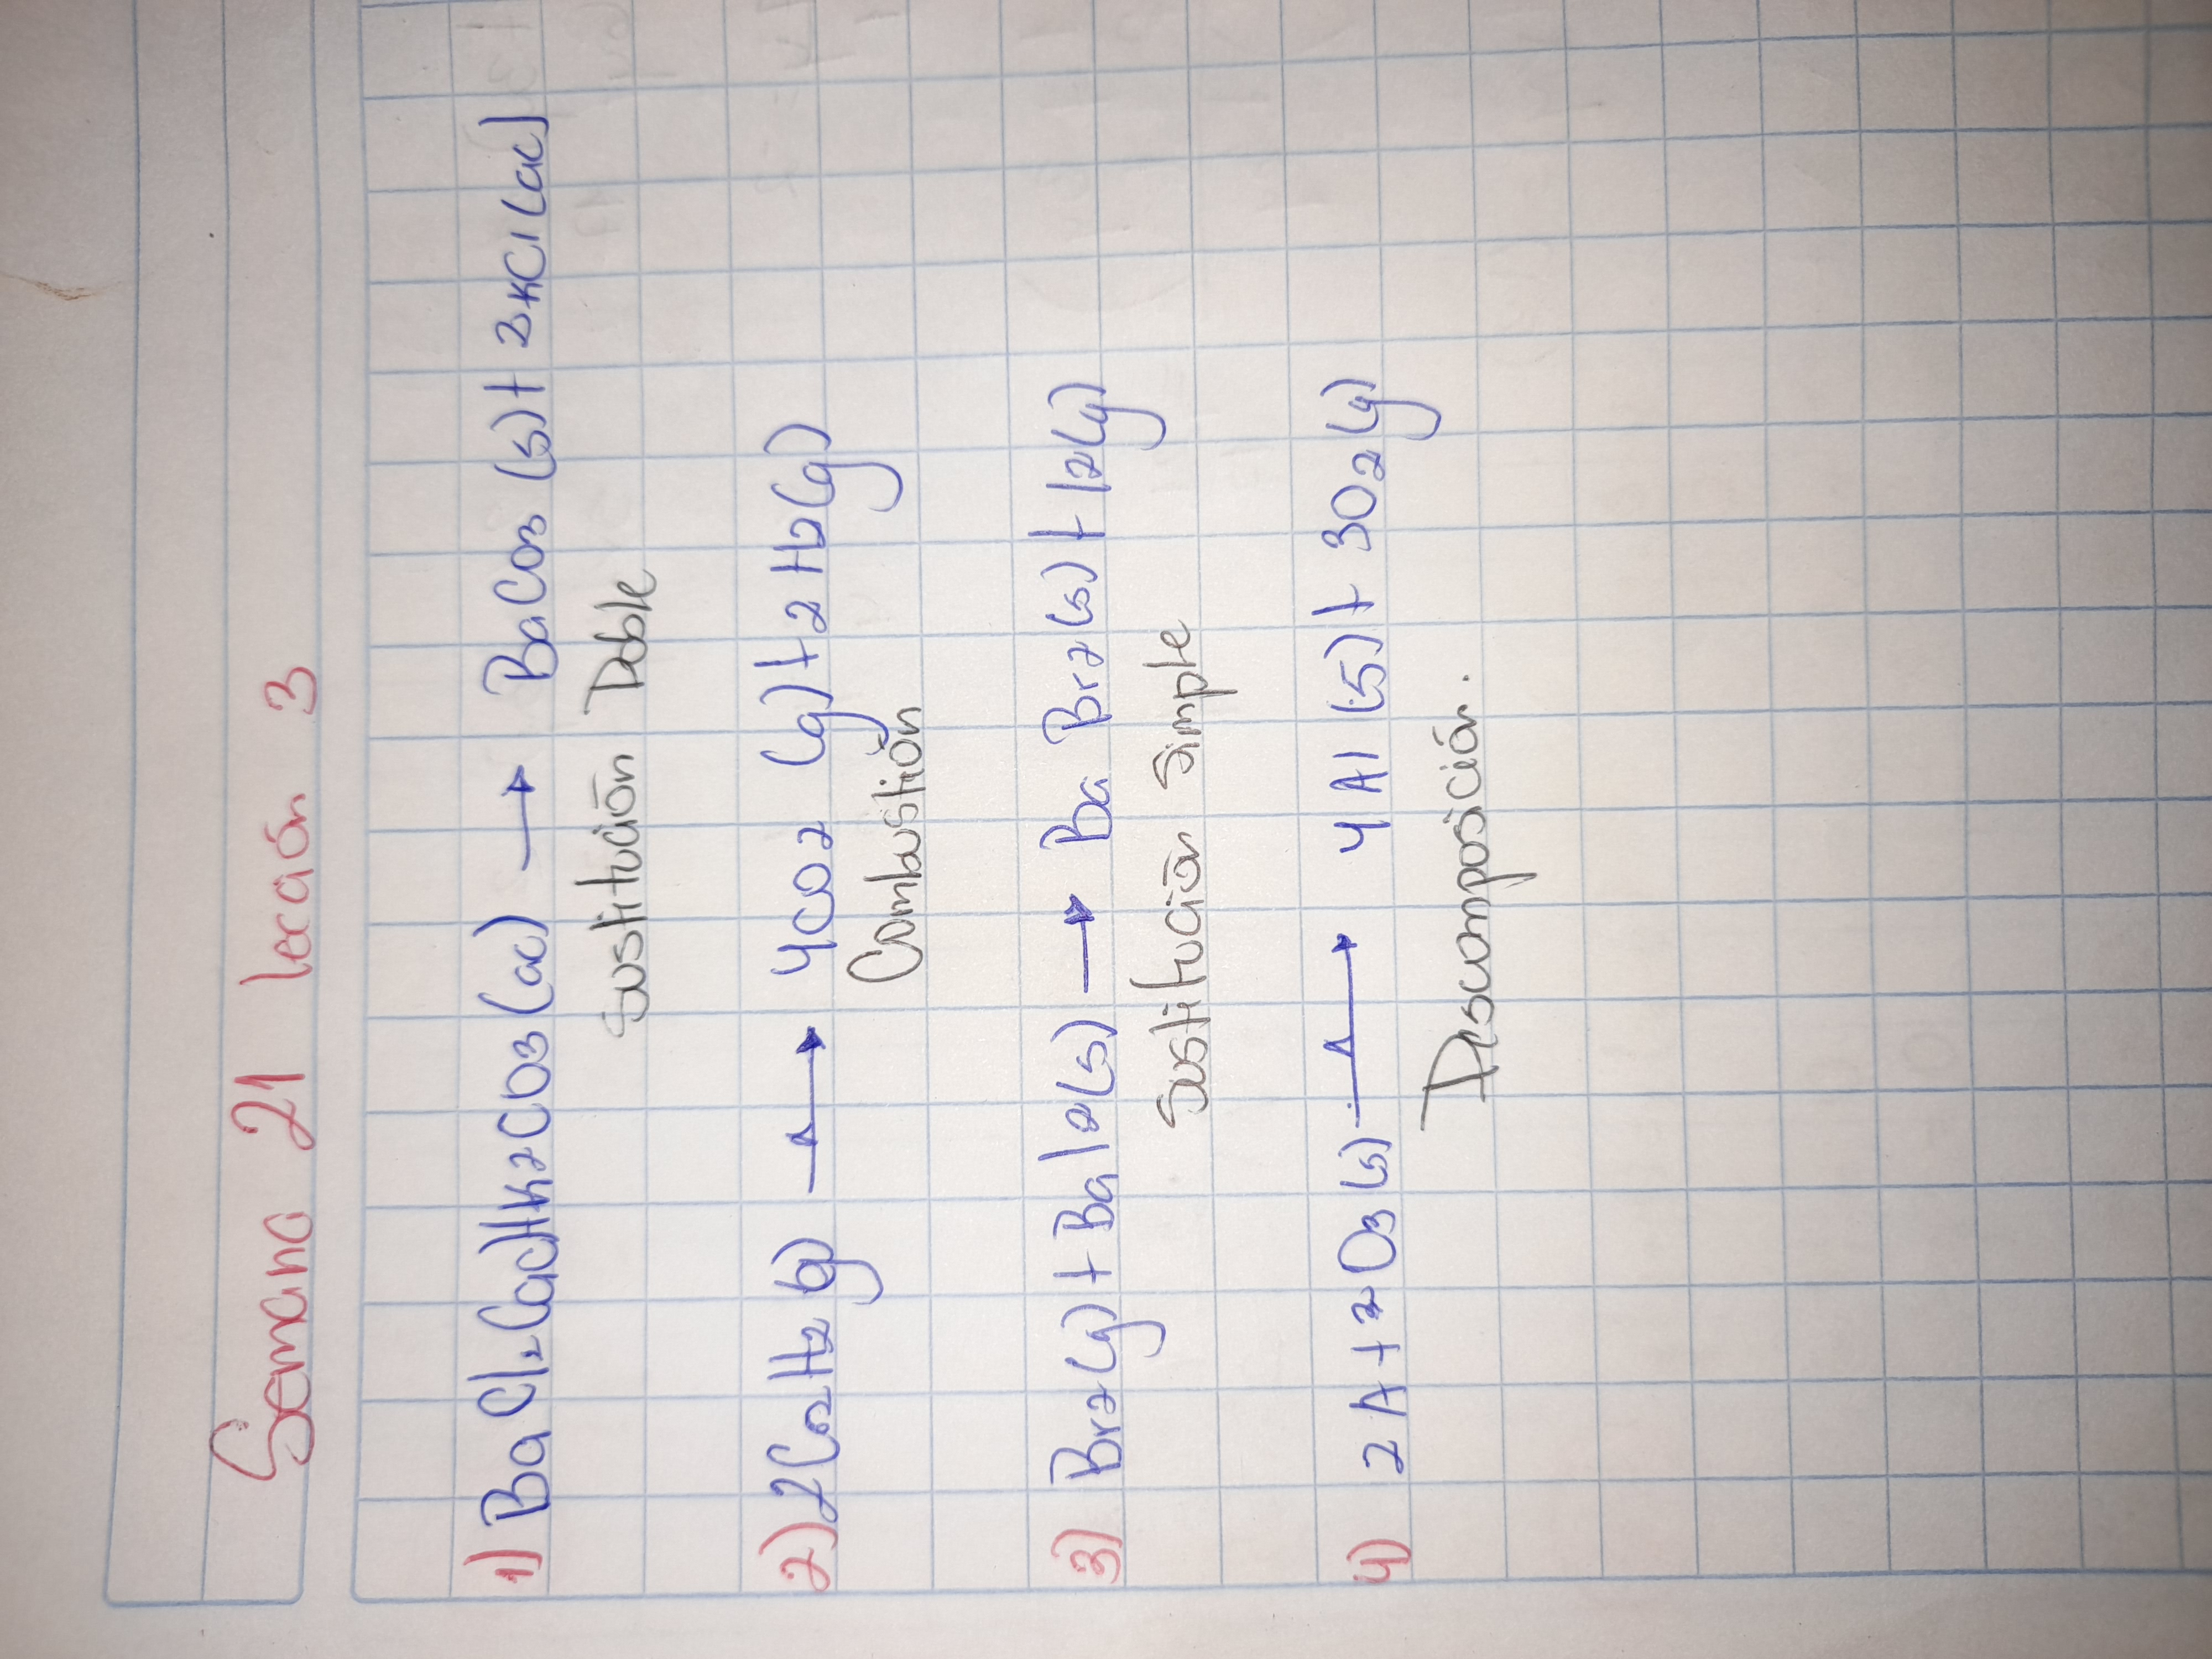 Semana 21 lección 3
1) BaCl2(ac)+K2CO3(ac) → BaCO3 (s)+ 2KCl(ac)
Sustitución Doble
2) 2C2H2(g) → 4CO2 (g)+2H2(g)
Combustión
3) Br2(g)+BaI2(s) → BaBr2(s)+I2(g)
Sustitución Simple
4) 2At2O3(s) → 4Al(s)+3O2(g)
Descomposición.